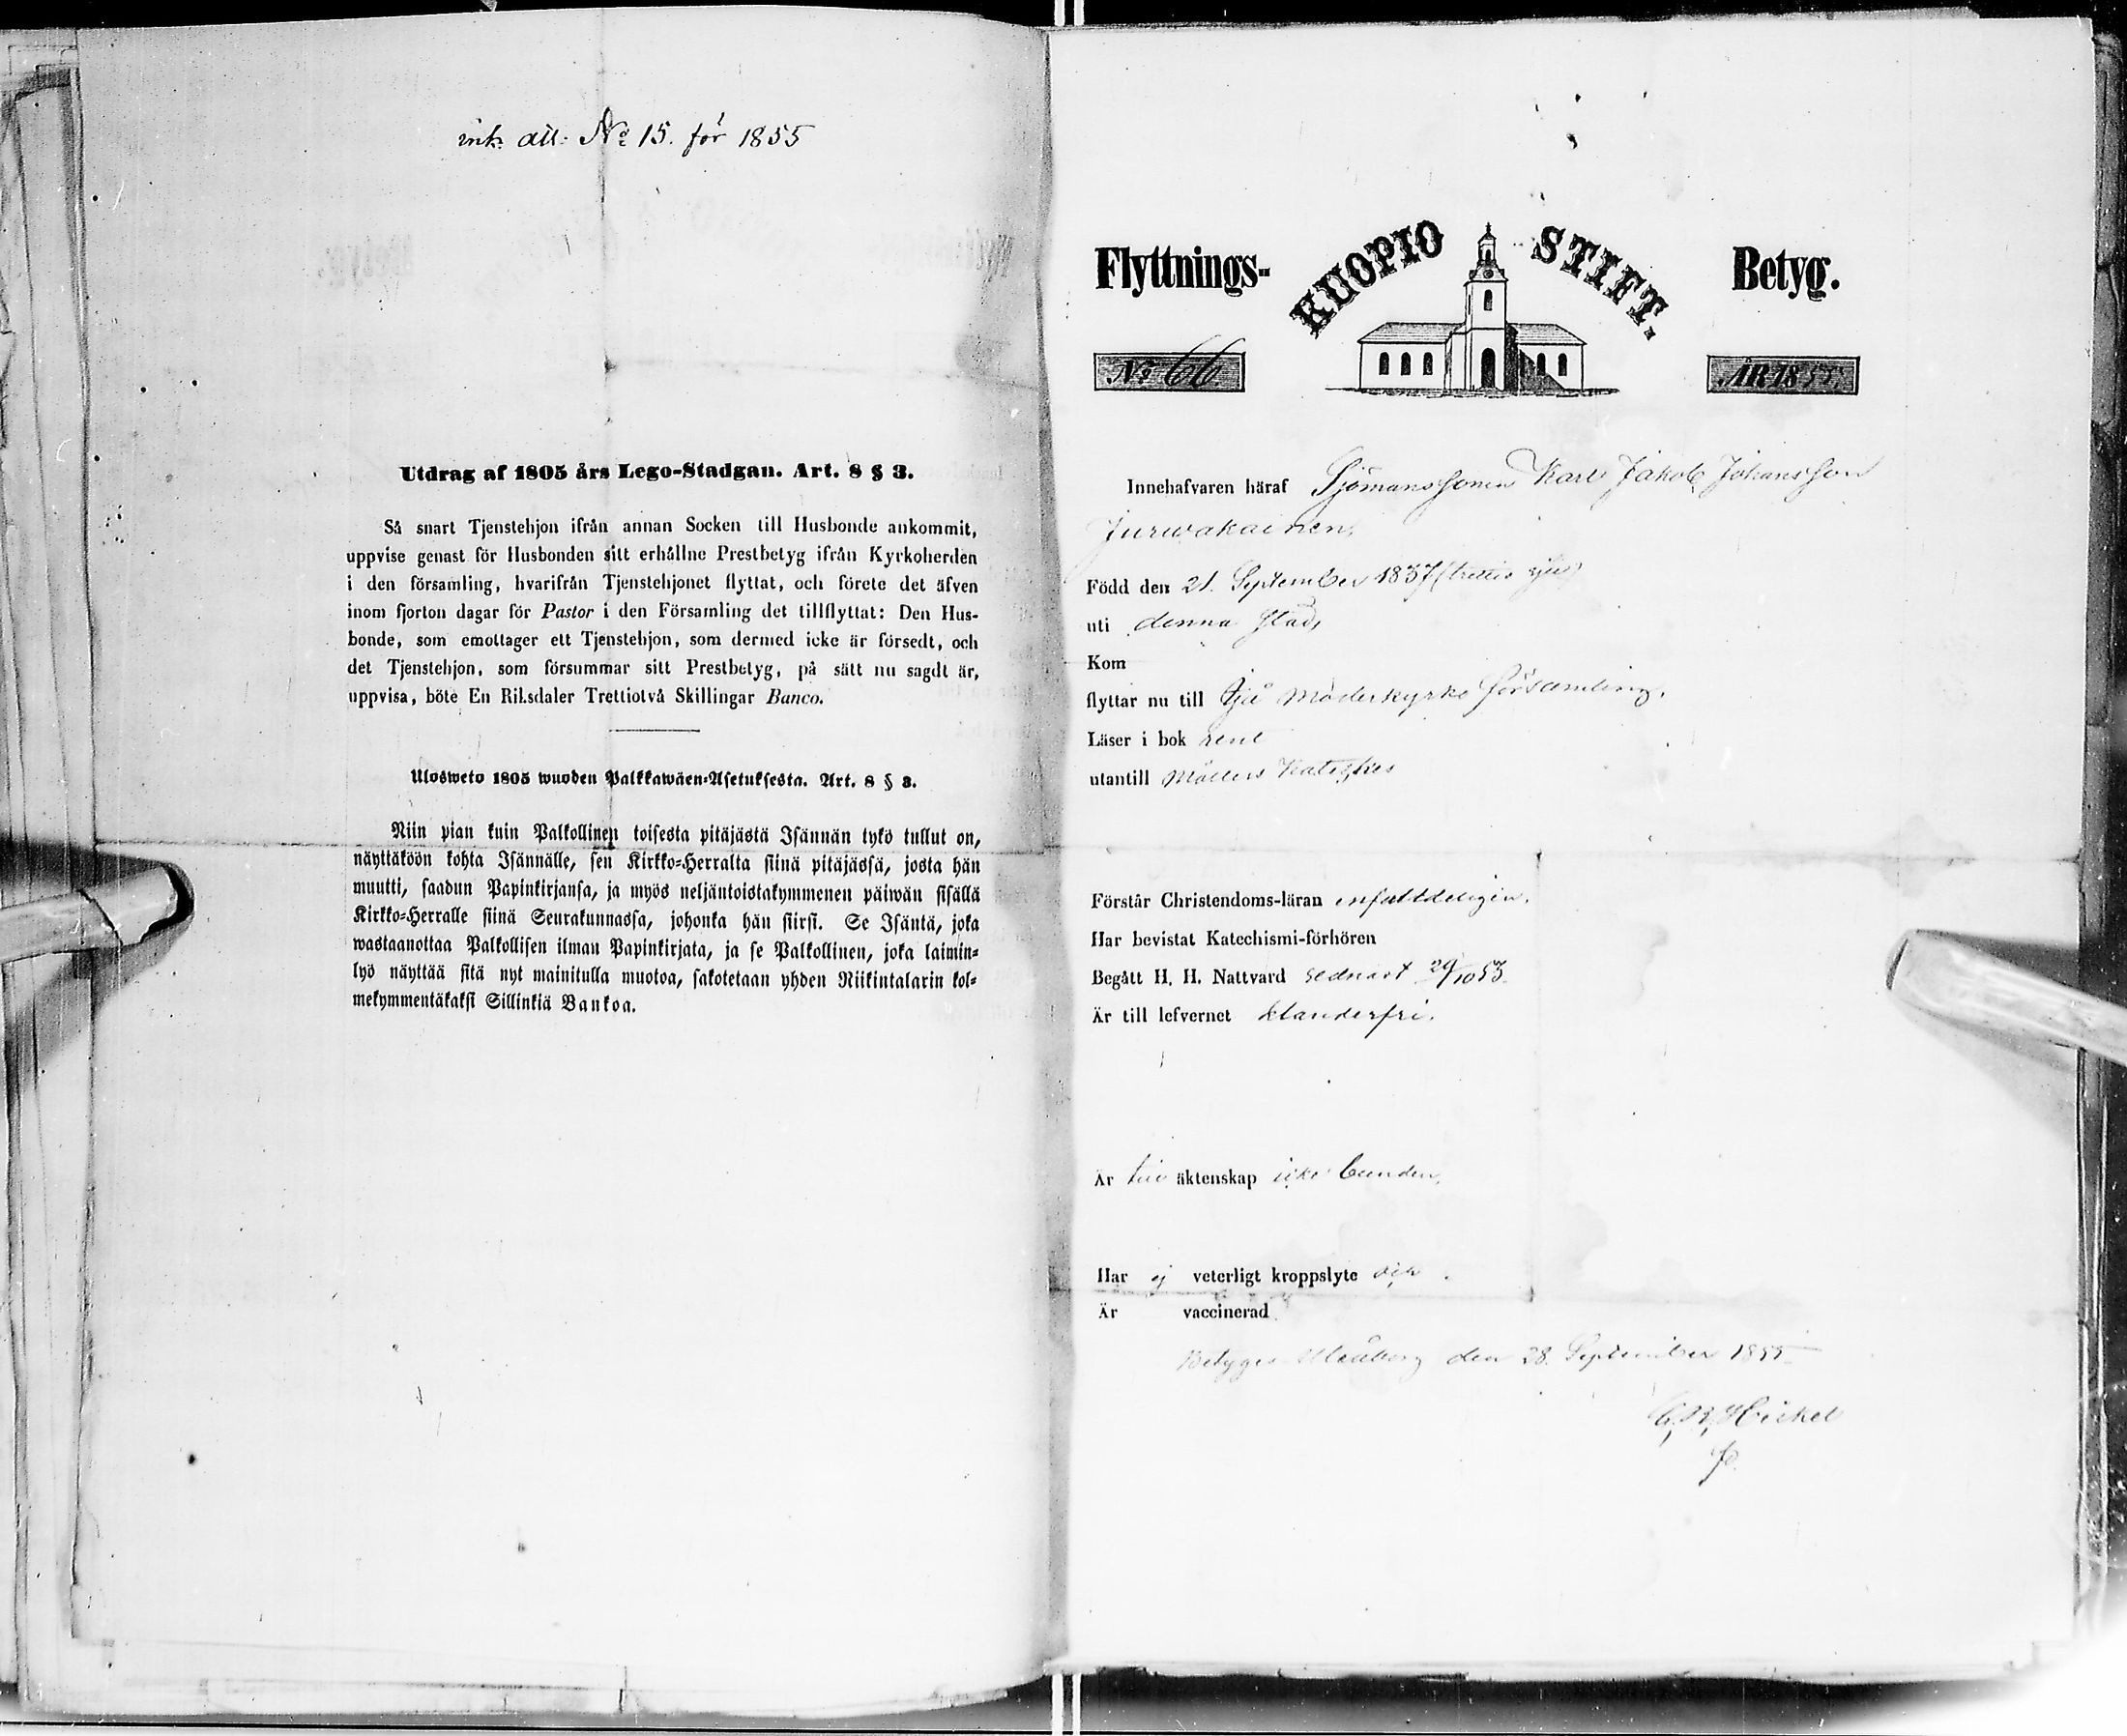 ink: att: No 15. för 1855
Utdrag af 1805 års Lego-Stadgan. Art. 8 § 3.
Så snart Tjenstehjon ifrån annan Socken till Husbonde ankommit,
uppvise genast för Husbonden sitt erhållne Prestbetyg ifrån Kyrkoherden
i den församling, hvarifrån Tjenstehjonet flyttat, och förete det äfven
inom fjorton dagar för Pastor i den Församling det tillflyttat: Den Hus-
bonde, som emottager ett Tjenstehjon, som dermed icke är försedt, och
det Tjenstehjon, som försummar sitt Prestbetyg, på sätt nu sagdt är,
uppvisa, böte En Riksdaler Trettiotvå Skillingar Banco.
Ulosweto 1805 wuoden Palkkawäen-Asetuksesta. Art. 8 § 3.
Niin pian kuin Palkollinen toisesta pitäjästä Isännän tykö tullut on,
näyttäköön kohta Isännälle, sen Kirkko-Herralta siinä pitäjässä, josta hän
muutti, saadun Papinkirjansa, ja myös neljäntoistakymmenen päiwän sisällä
Kirkko-Herralle siinä Seurakunnassa, johonka hän siirsi. Se Isäntä, joka
wastaanottaa Palkollisen ilman Papinkirjata, ja se Palkollinen, joka laimin-
lyö näyttää sitä nyt mainitulla muotoa, sakotetaan yhden Riikintalarin kol-
mekymmentäkaksi Sillinkiä Bankoa.
Flyttnings- KUOPIO STIFT. Betyg.
No 66 ÅR 1855
Innehafvaren häraf Sjömanssonen Karl Jakob Johansson
Jurwakainen,
Född den 21. September 1837 (trettio sju)
uti denna Stad,
Kom
flyttar nu till Ijå Moderkyrko församling.
Läser i bok rent
utantill Möllers Kateches
Förstår Christendoms-läran enfalldeligen.
Har bevistat Katechismi-förhören
Begått H. H. Nattvard sednast 29/10 53.
Är till lefvernet klanderfri.
Är till äktenskap icke bunden,
Har ej veterligt kroppslyte och
Är vaccinerad
Betygas Uleåborg den 28. September 1855